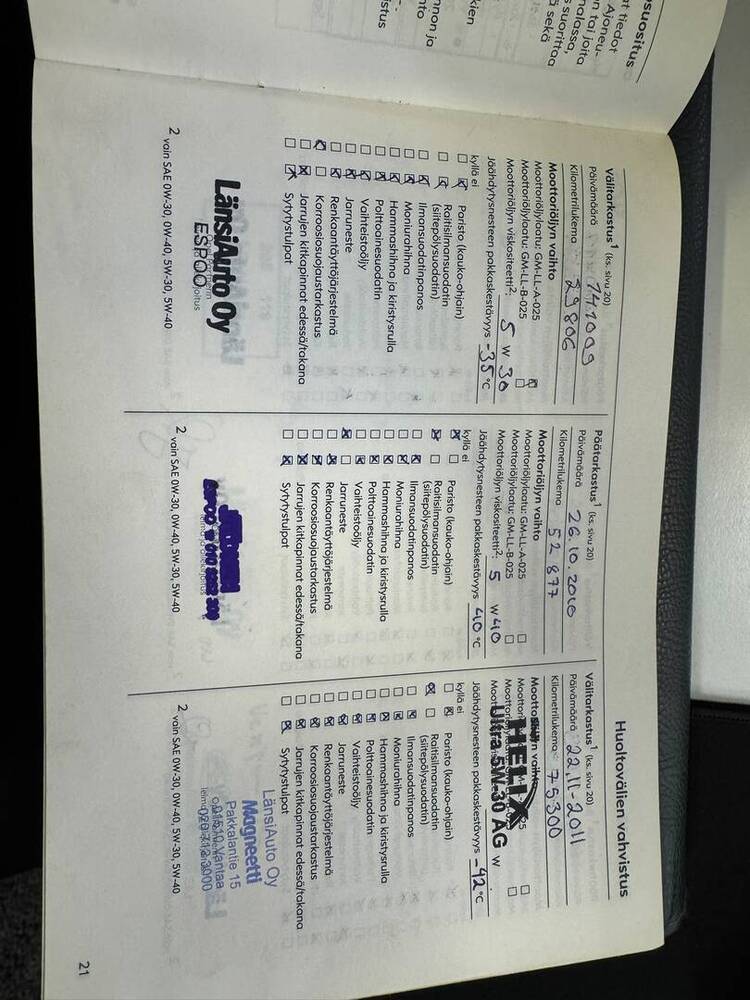 suositus
at tiedot
Ajoneu-
n tai joita
nalassa,
s suorittaa
ä sekä
kien
nnon ja
nto
istus
Huoltovälien vahvistus
Välitarkastus¹ (ks. sivu 20)
Päivämäärä
Kilometrilukema 29 806
Moottoriöljyn vaihto
Moottoriöljylaatu: GM-LL-A-025
Moottoriöljylaatu: GM-LL-B-025
Moottoriöljyn viskositeetti²: 5 W 30
Jäähdytysnesteen pakkaskestävyys -35 °C
kyllä ei
Paristo (kauko-ohjain)
Raitisilmansuodatin
(siitepölysuodatin)
Ilmansuodatinpanos
Moniurahihna
Hammashihna ja kiristysrulla
Polttoainesuodatin
Vaihteistoöljy
Jarruneste
Renkaantäyttöjärjestelmä
Korroosiosuojaustarkastus
Jarrujen kitkapinnat edessä/takana
Sytytystulpat
LänsiAuto Oy
ESPOO
2 vain SAE 0W-30, 0W-40, 5W-30, 5W-40
Päätarkastus¹ (ks. sivu 20)
Päivämäärä 26.10.2010
Kilometrilukema 52 877
Moottoriöljyn vaihto
Moottoriöljylaatu: GM-LL-A-025
Moottoriöljylaatu: GM-LL-B-025
Moottoriöljyn viskositeetti²: 5 W 40
Jäähdytysnesteen pakkaskestävyys -40 °C
kyllä ei
Paristo (kauko-ohjain)
Raitisilmansuodatin
(siitepölysuodatin)
Ilmansuodatinpanos
Moniurahihna
Hammashihna ja kiristysrulla
Polttoainesuodatin
Vaihteistoöljy
Jarruneste
Renkaantäyttöjärjestelmä
Korroosiosuojaustarkastus
Jarrujen kitkapinnat edessä/takana
Sytytystulpat
2 vain SAE 0W-30, 0W-40, 5W-30, 5W-40
Välitarkastus¹ (ks. sivu 20)
Päivämäärä 22.11-2011
Kilometrilukema 75300
HELIX
Ultra 5W-30 AG W
Jäähdytysnesteen pakkaskestävyys -42 °C
kyllä ei
Paristo (kauko-ohjain)
Raitisilmansuodatin
(siitepölysuodatin)
Ilmansuodatinpanos
Moniurahihna
Hammashihna ja kiristysrulla
Polttoainesuodatin
Vaihteistoöljy
Jarruneste
Renkaantäyttöjärjestelmä
Korroosiosuojaustarkastus
Jarrujen kitkapinnat edessä/takana
Sytytystulpat
LänsiAuto Oy
Magneetti
Pakkalantie 15
01510 Vantaa
020 712 3000
2 vain SAE 0W-30, 0W-40, 5W-30, 5W-40
21